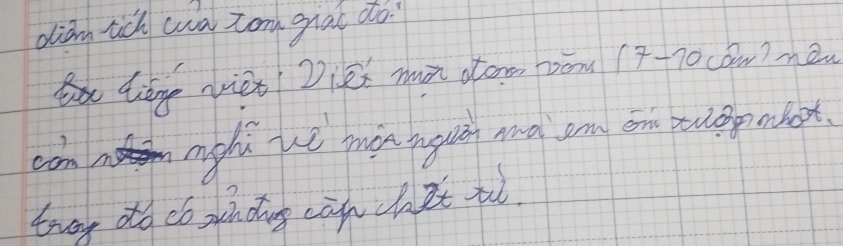 diện tích của tam giác đó.
tiếng việt: Viết một đoạn văn (7-10 câu) nêu
cảm nghĩ về một người mà em ấn tượng nhất.
trong đó có sử dụng cặp chất từ.